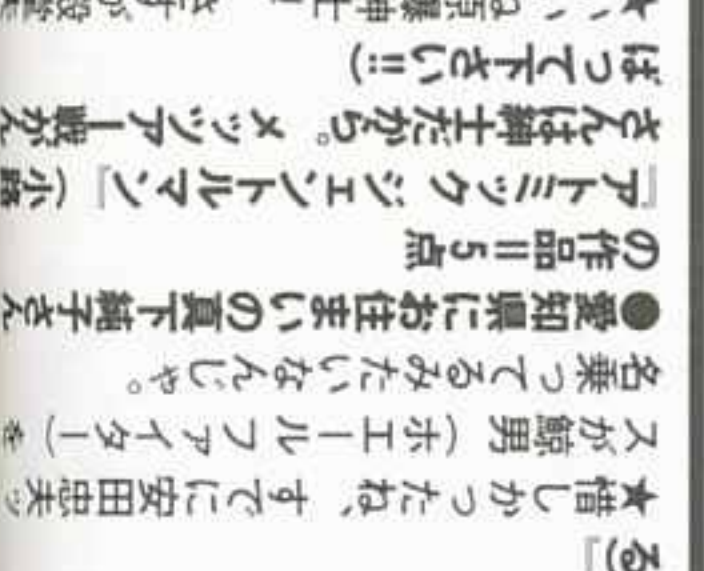 る)』
★惜しかったね、すでに安田忠夫ッ
スが鯨男(ホエールファイター)を
名乗ってるみたいなんじゃ。
●愛知県にお住まいの真下純子さん
の作品=5点
『アトミック ジェントルマン』(小路
さんは紳士だから。メッツァー戦がん
ばって下さい!!)
★ 原爆紳士! さすが